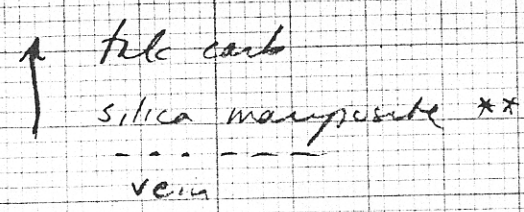 talc carb
silica mariposite **
vein